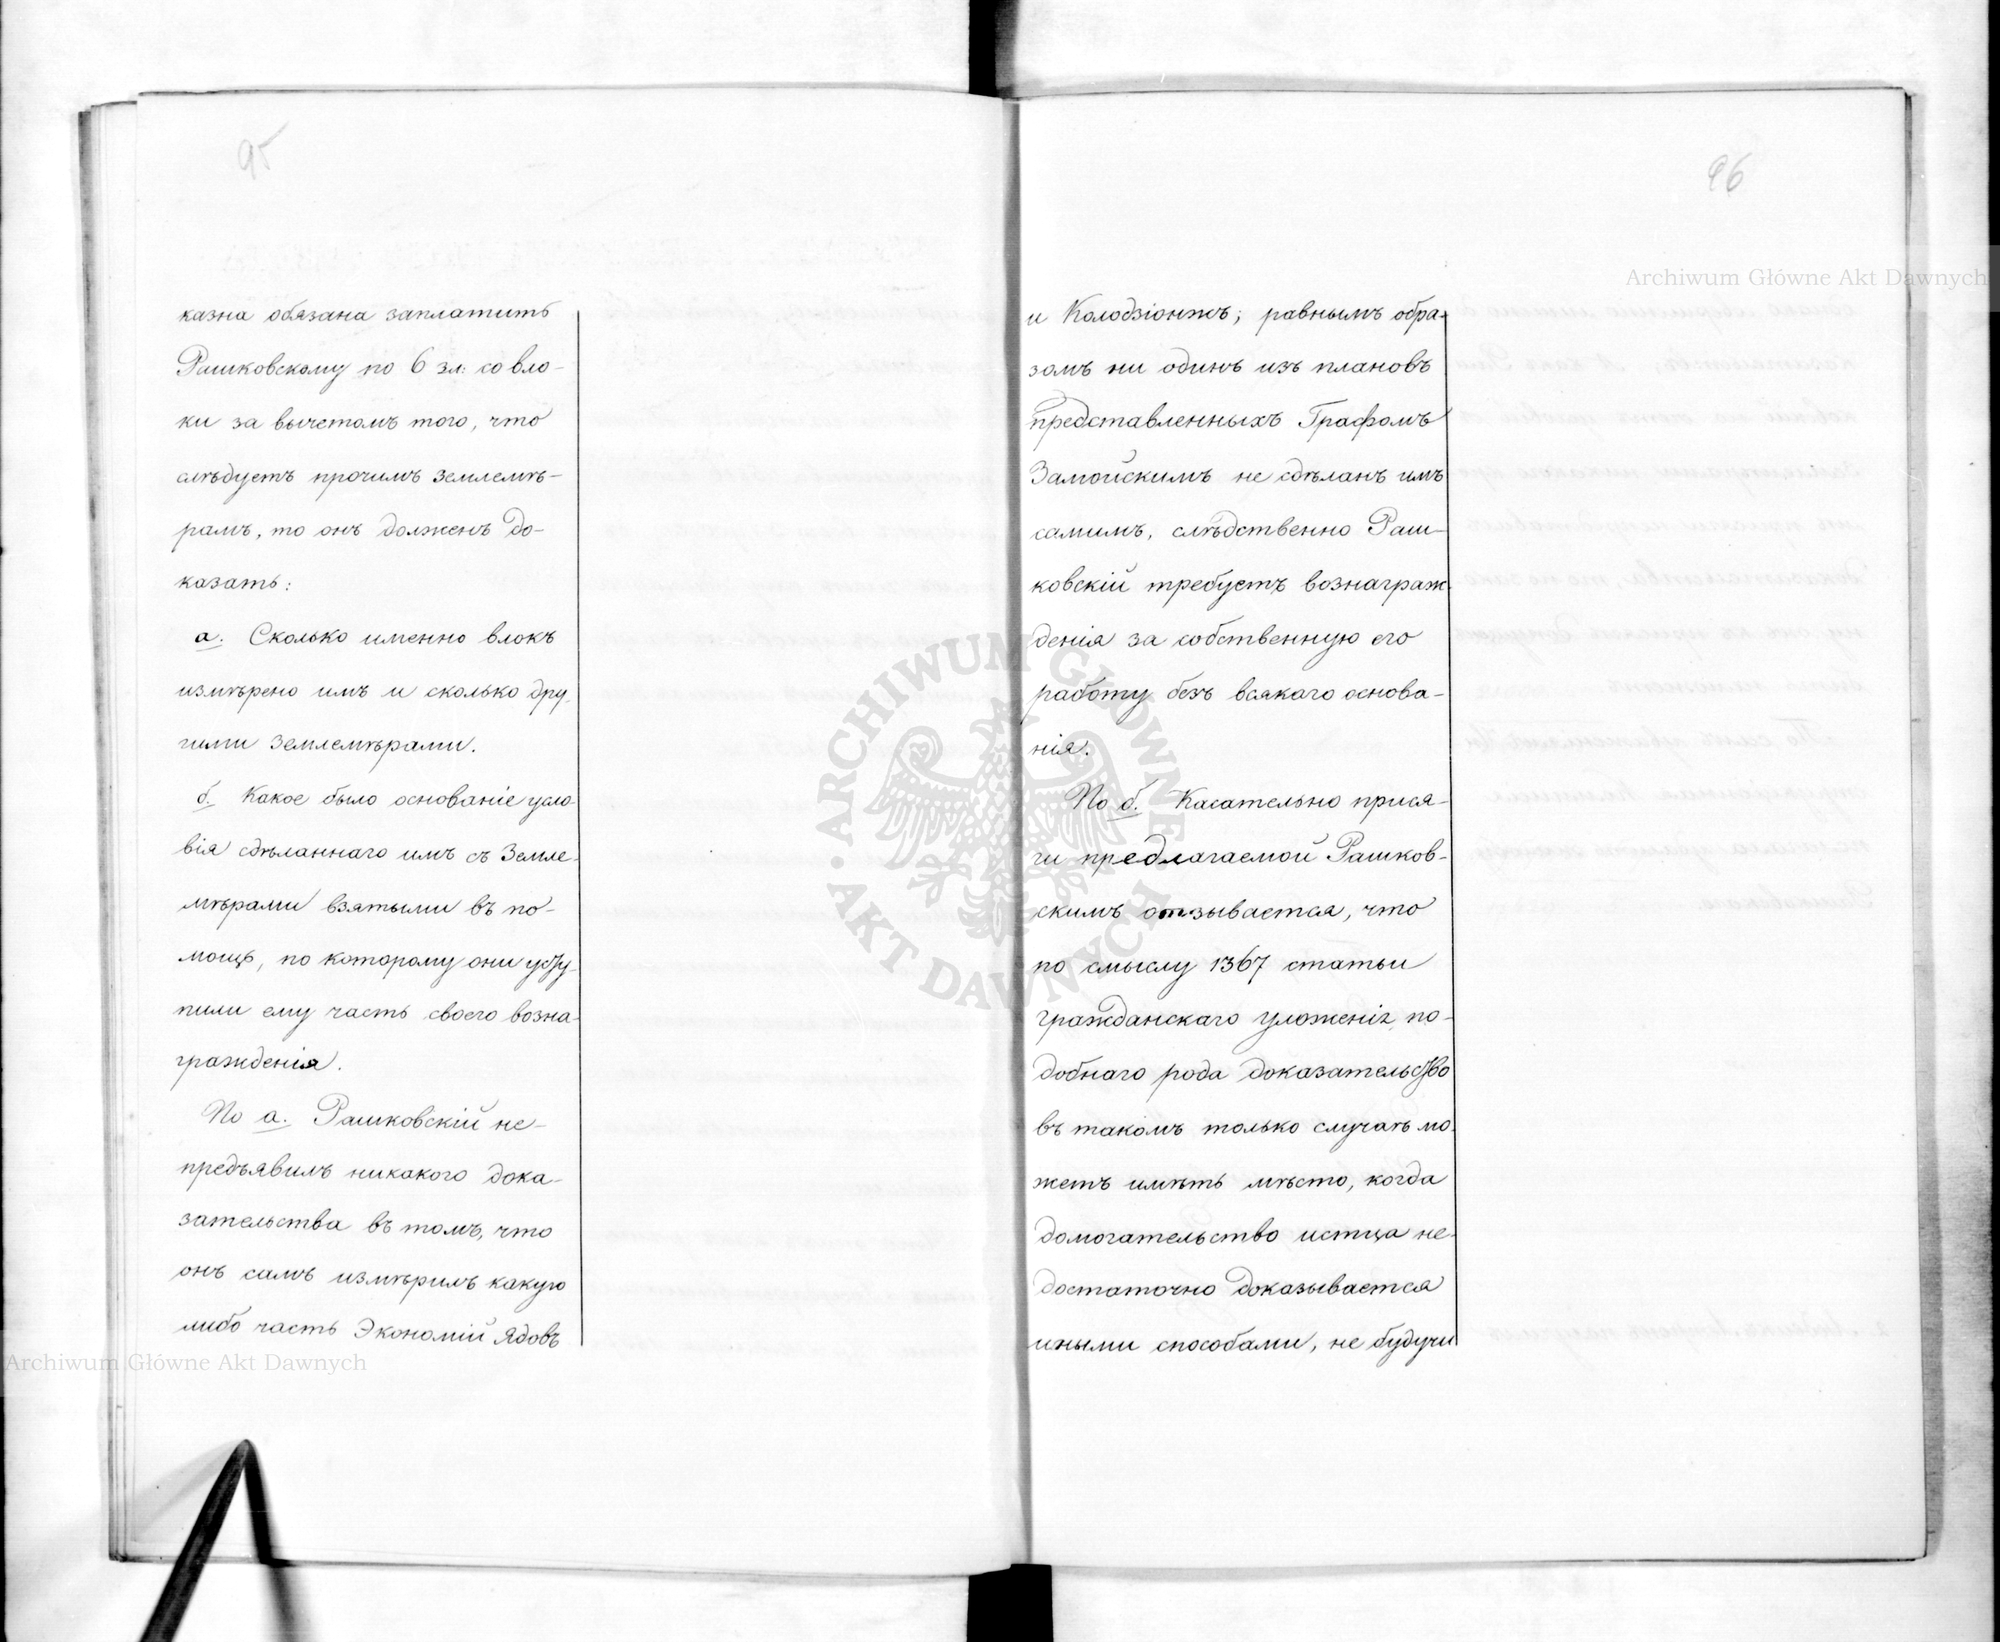 95
казна обязана заплатить
Рашковскому по 6 зл: со вло-
ки за вычетомъ того, что
слѣдуетъ прочимъ землемѣ-
рамъ, то онъ долженъ до-
казать:
а. Сколько именно влокъ
измѣрено имъ и сколько дру-
гими землемѣрами.
б. Какое было основаніе усло-
вія сдѣланнаго имъ съ Земле-
мѣрами взятыми въ по-
мощь, по которому они усту-
пили ему часть своего возна-
гражденія.
По а. Рашковскій не-
предъявилъ никакого дока-
зательства въ томъ, что
онъ самъ измѣрилъ какую
либо часть Экономій Ядовъ
96
и Колодзіонжъ; равнымъ обра-
зомъ ни одинъ изъ плановъ
представленныхъ Графомъ
Замойскимъ не сдѣланъ имъ
самимъ, слѣдственно Раш-
ковскій требуетъ вознаграж-
денія за собственную его
работу безъ всякаго основа-
нія.
По б. Касательно прися-
ги предлагаемой Рашков-
скимъ отзывается, что
по смыслу 1367 статьи
гражданскаго уложенія, по-
добнаго рода доказательство
въ такомъ только случаѣ мо-
жетъ имѣть мѣсто, когда
домогательство истца не-
достаточно доказывается
иными способами, не будучи
Archiwum Główne Akt Dawnych
ARCHIWUM GŁÓWNE AKT DAWNYCH
Archiwum Główne Akt Dawnych